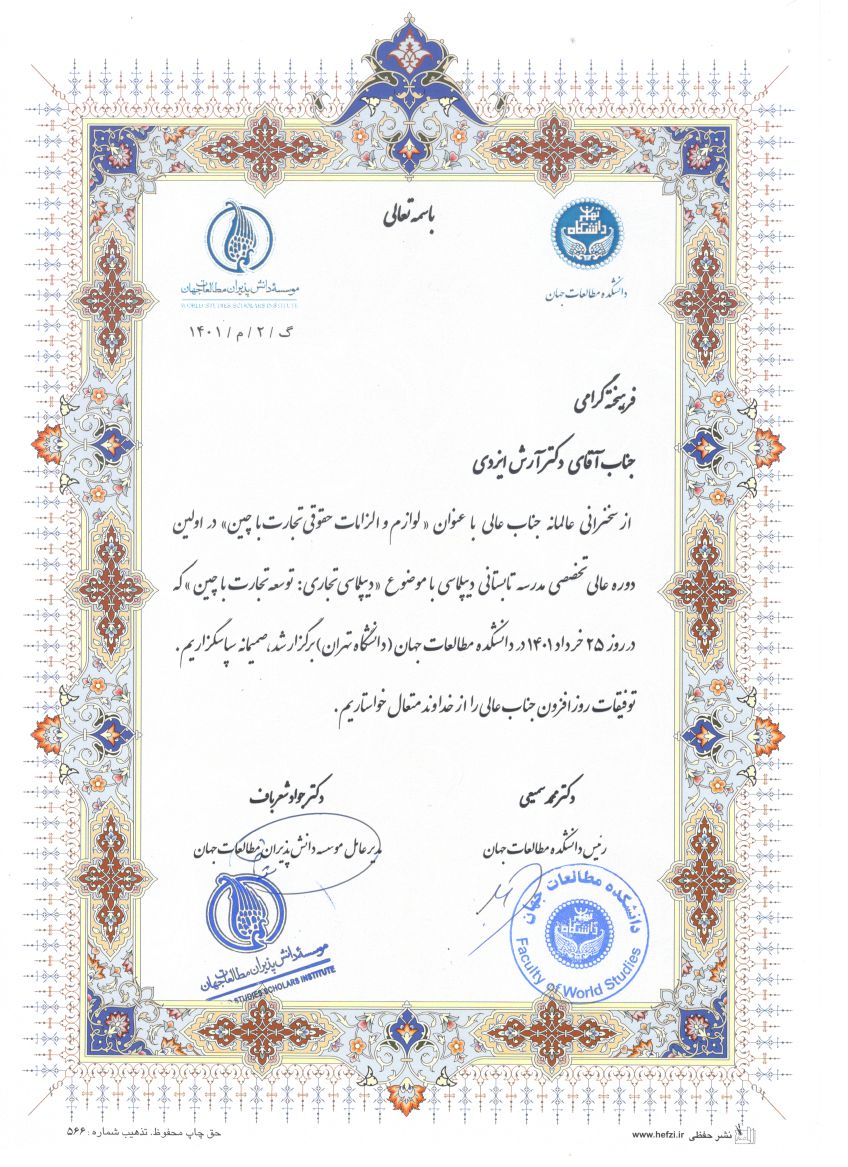 باسمه تعالی
تهران
دانشگاه
دانشکده مطالعات جهان
موسسه دانش پذیران مطالعات جهان
WORLD STUDIES SCHOLARS INSTITUTE
گ / ۲ / م / ۱۴۰۱
فرهیخته گرامی
جناب آقای دکتر آرش ایزدی
از سخنرانی عالمانه جناب عالی با عنوان «لوازم و الزامات حقوقی تجارت با چین» در اولین
دوره عالی تخصصی مدرسه تابستانی دیپلماسی با موضوع «دیپلماسی تجاری: توسعه تجارت با چین» که
در روز ۲۵ خرداد ۱۴۰۱ در دانشکده مطالعات جهان (دانشگاه تهران) برگزار شد، صمیمانه سپاسگزاریم.
توفیقات روز افزون جناب عالی را از خداوند متعال خواستاریم.
دکتر محمد سمیعی
رئیس دانشکده مطالعات جهان
دکتر جواد شعرباف
مدیر عامل موسسه دانش پذیران مطالعات جهان
دانشکده مطالعات جهان
تهران
دانشگاه
Faculty of World Studies
موسسه دانش پذیران مطالعات جهان
STUDIES SCHOLARS INSTITUTE
نشر حفظی www.hefzi.ir
حق چاپ محفوظ. تذهیب شماره: ۵۶۶